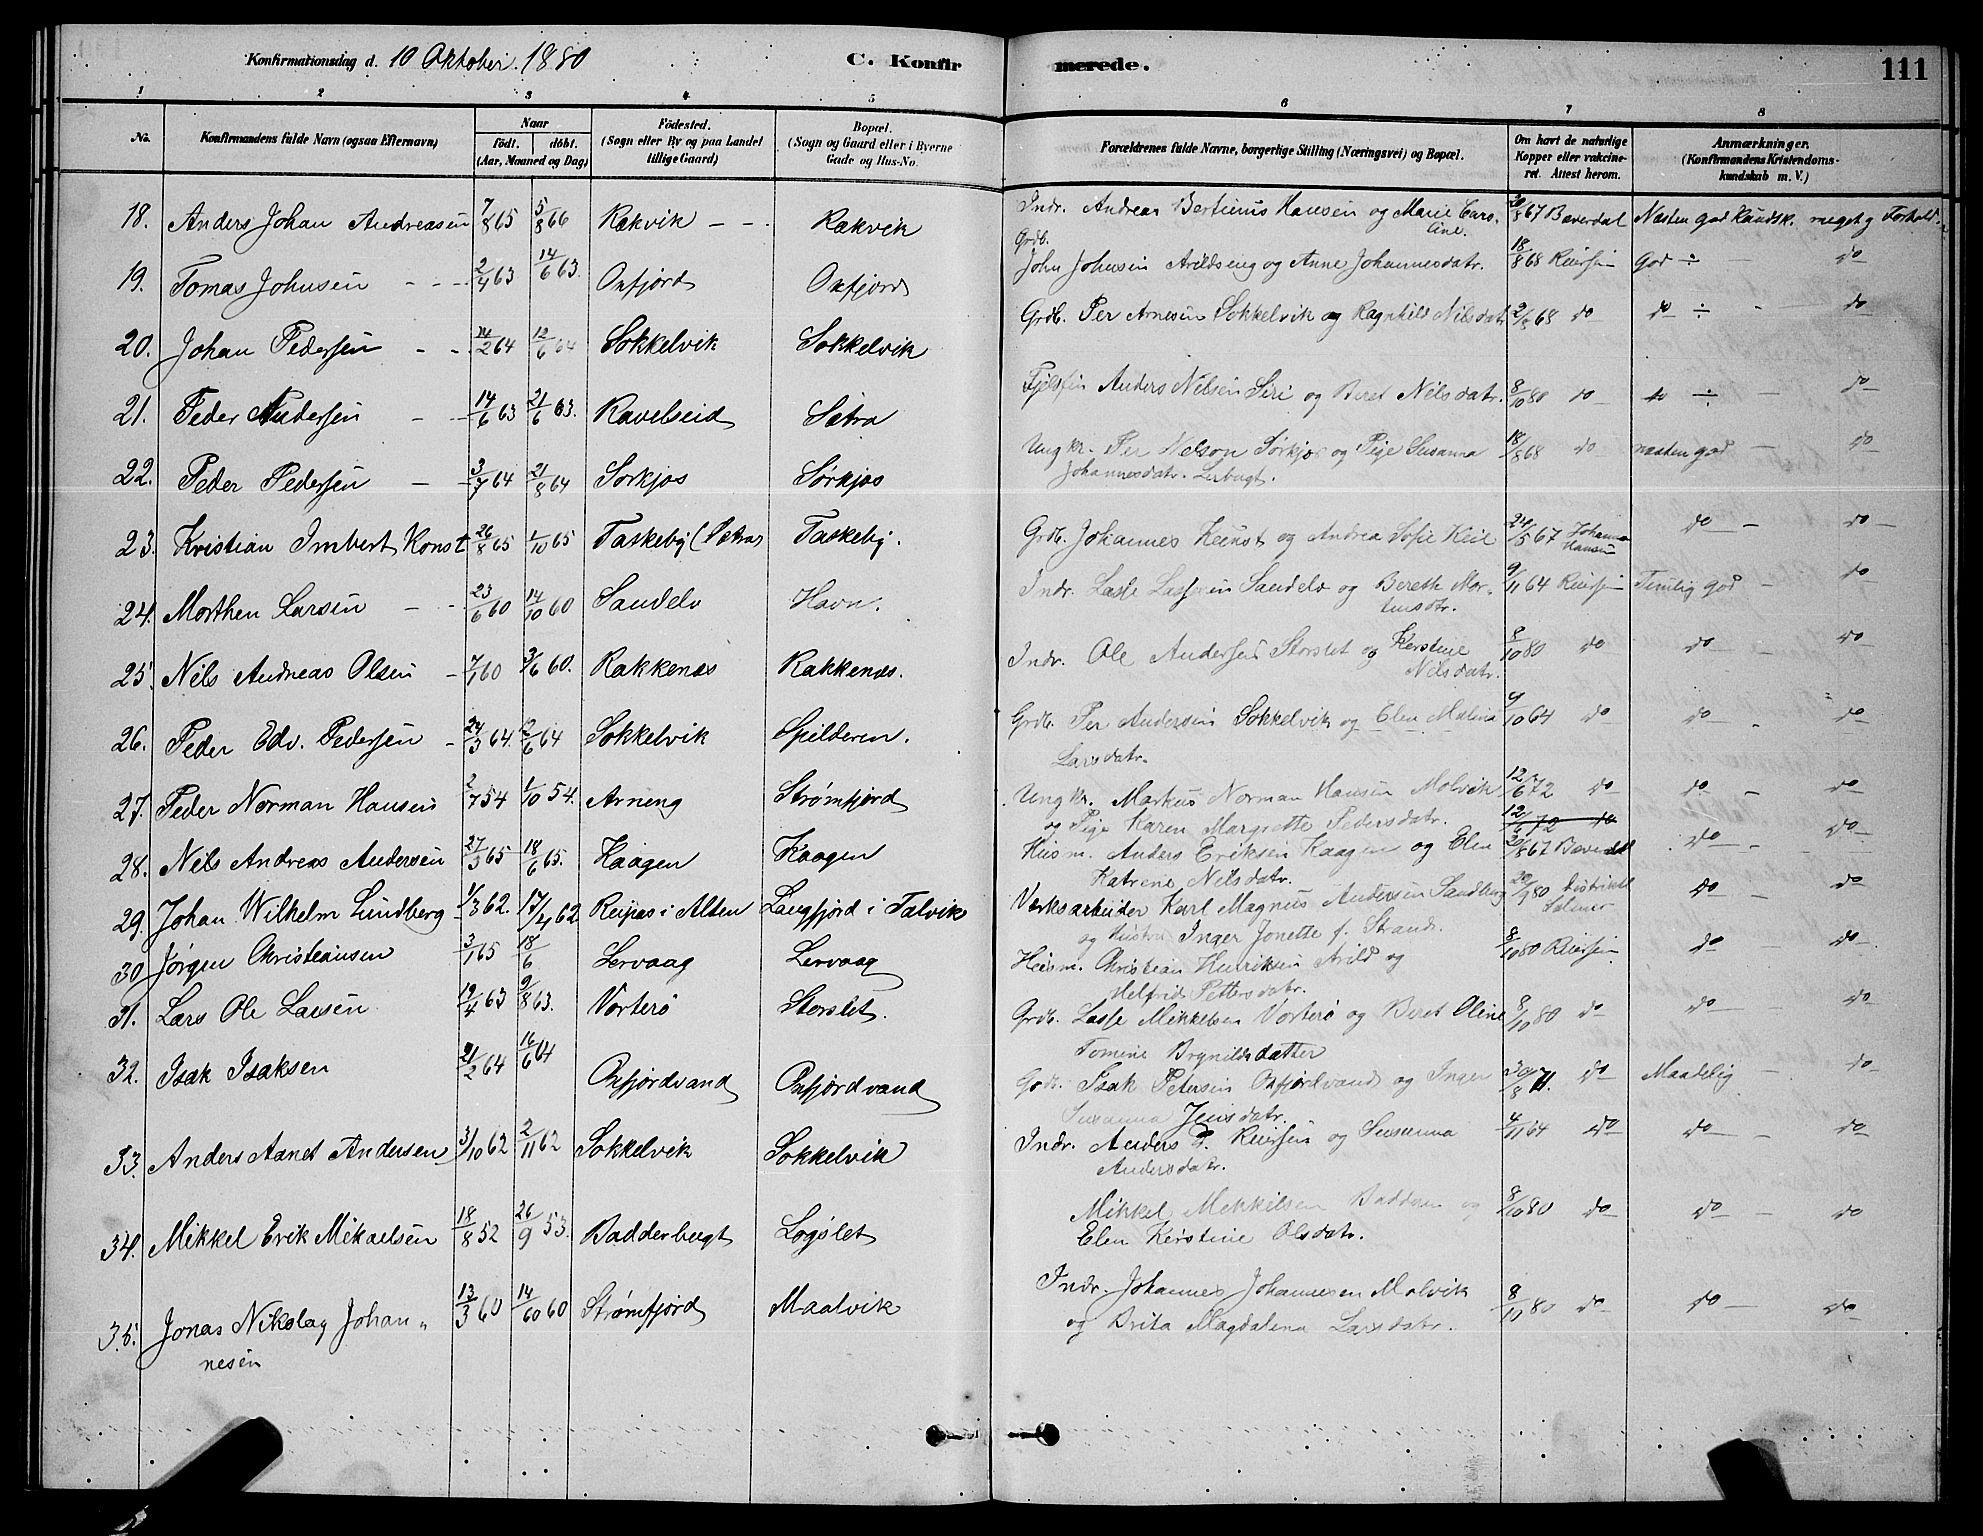 Konfirmationsdag d. 10 Oktober 1880 C. Konfirmerede. 111
1 2 3 4 5 6 7 8
No. Konfirmandens fulde Navn (ogsaa Efternavn) Naar født. døbt. (Aar, Maaned og Dag) Fødested. (Sogn eller By og paa Landet tillige Gaard) Bopæl. (Sogn og Gaard eller i Byerne Gade og Hus-No. Forældrenes fulde Navne, borgerlige Stilling (Næringsvei) og Bopæl. Om havt de naturlige Kopper eller vakcineret. Attest herom. Anmærkninger. (Konfirmandens Kristendomskundskab m. V.)
18. Anders Johan Andreasen 7/8 65 5/8 66 Rakvik Rakvik Indr. Andreas Bertinus Hansen og Marie Caroline. 20/8 67 Baverdal Næsten god Kundsk. meget g Forhold
19. Tomas Johnsen 2/4 63 14/6 63. Oxfjord Oxfjord Grdb. John Johnsen Arildseng og Anne Johannesdatr. 18/8 68 Reiersen God ÷ do
20. Johan Pedersen 14/2 64 12/6 64 Sokkelvik Sokkelvik Grdb. Per Arnesen Sokkelvik og Ragnhild Nilsdatr 2/8 68 do do ÷ - do
21. Peder Andersen 14/6 63 21/6 63. Ravelseid Sætra Fjeldfin Anders Nilsen Siri og Beret Nilsdatr. 8/10 80 do do ÷ - do
22. Peder Pedersen 3/7 64 21/8 64 Sorkjos Sørkjos Ungkr. Per Nelson Sørkjos og Pige Susanna Johannesdatr. Lerbugt. 18/8 68 do næsten god - do
23. Kristian Imbert Konst 26/8 65 1/10 65 Taskeby (Sætra) Taskeby. Grdb. Johannes Kunst og Andrea Sofie Keil 24/5 67 Johannes Hansen do - do -
24. Morthen Larsen 23/6 60 14/10 60 Sandelv Havn. Indr. Lasse Lassesen Sandelv og Bereth Mortensdtr. 9/11 64 Reiersen Temlig god - do
25. Nils Andreas Olsen 7/1 60 3/6 60. Rakkenæs Rakkenæs. Indr. Ole Andersen Storslet og Kerstine Nilsdatr. 8/10 80 do do - do
26. Peder Edv. Pedersen 24/3 64. 12/6 64 Sokkelvik Spilderen. Grdb. Per Andersen Sokkelvik og Elen Malena Larsdatr. 4/10 64 do do - do
27. Peder Norman Hansen 2/7 54 1/10 54. Arneng Strømfjord Ungkr. Markus Norman Hansen Molvik og Pige Karen Margrette Pedersdatr. 12/6 72 do do - do
12/6 72 do
28. Nils Andreas Andersen 27/3 65 18/6 65. Kaagen Kaagen Husm. Anders Eriksen Kaagen og Elen Katrene Nilsdatr. 20/8 67 Baverdal do - do
29. Johan Wilhelm Lundberg 1/3 62. 17/4 62 Reipas i Alten Langfjord i Talvik Værksarbeider Karl Magnus Andersen Sandberg og Hustru Inger Jonette f. Strand. 20/9 80 do - do
30 Jørgen Christiansen 3/1 65 18/6 Lervaag Lervaag Husm. Christian Henriksen Arild og Helfrid Pettersdatr. 8/10 80 Reiersen do - do
31. Lars Ole Larsen 19/4 63 9/8 63. Vorterø Storslet. Grdb. Lasse Mikkelsen Vorterø og Beret Oline Tomine Brynildsdatter 8/10 80 do do - do
32. Isak Isaksen 21/2 64 16/6 64 Oxfjordvand Oxfjordvand Grdb. Isak Petersen Oxfjordvand og Inger Susanna Jensdatr. 30/8 71. do Maadelig - do
33. Anders Aanet Andersen 3/10 62 2/11 62 Sokkelvik Sokkelvik Indr. Anders P. Reiersen og Susanna Andersdatr. 4/11 64 do do - do
34. Mikkel Erik Mikaelsen 18/8 52 26/9 53. Badderbugt Logslet Mikkel Mekkelsen Baddern og Elen Kerstine Olsdatr. 8/10 80 do do - do
35. Jonas Nikolay Johannesen 13/3 60 14/60 60 Strømfjord Maalvik Indr. Johannes Johannesen Molvik og Brita Magdalena Larsdatr. 8/10 80 do do - do